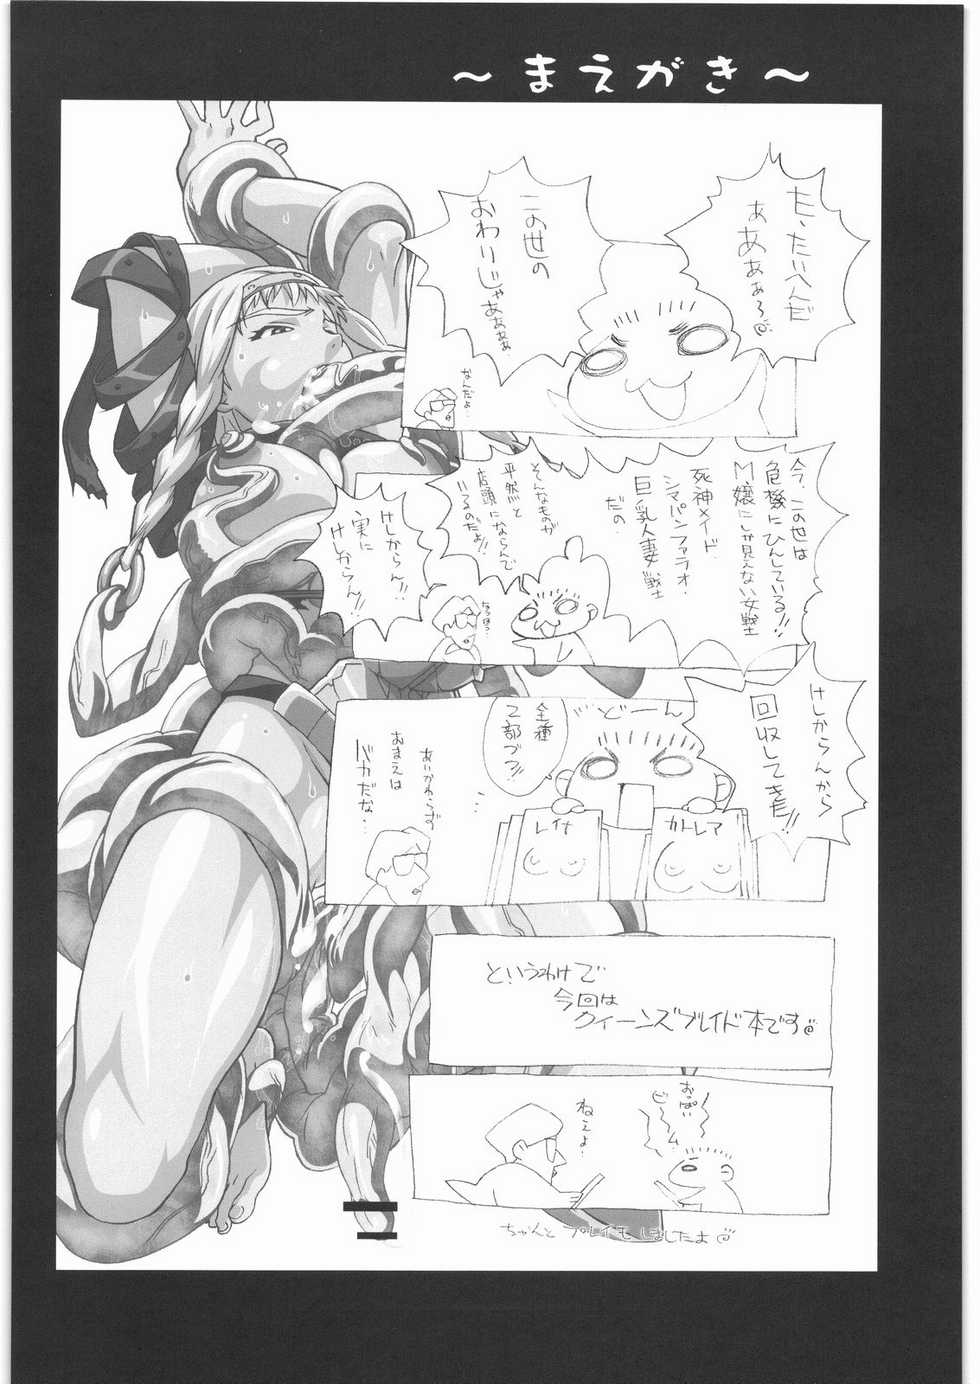 ～まえがき～
た、たいへんだ
ぁあぁぁ～
この世の
おわりじゃあぁぁぁ
なんだよ…
今、この世は
危機にひんしている!!
M嬢にしか見えない女戦士
死神メイド・
シマパンファラオ・
巨乳人妻戦士
だの
そんなものが
平然と
店頭にならんで
いるのだよ!!
けしからん!!
実に
けしからん!!
なるほど…
けしからんから
回収してきた!!
どーん
全種
2部づつ!!
レイナ
カトレア
あいかわらず
おまえは
バカだな…
というわけで
今回は
クイーンズブレイド本です
おっぱい
ビーム
ねぇよ…
ちゃんとプレイもしましたよ